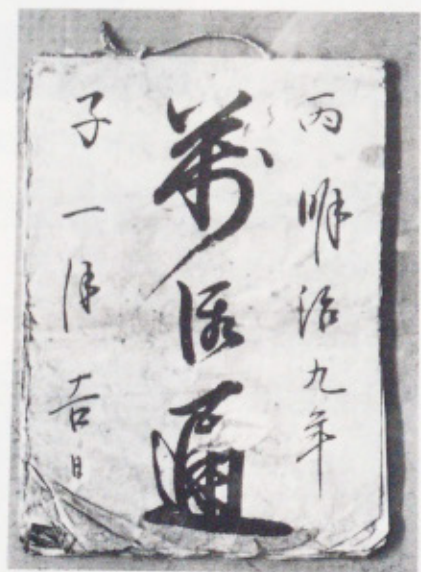 丙 明治九年
萬通
子 一 吉日